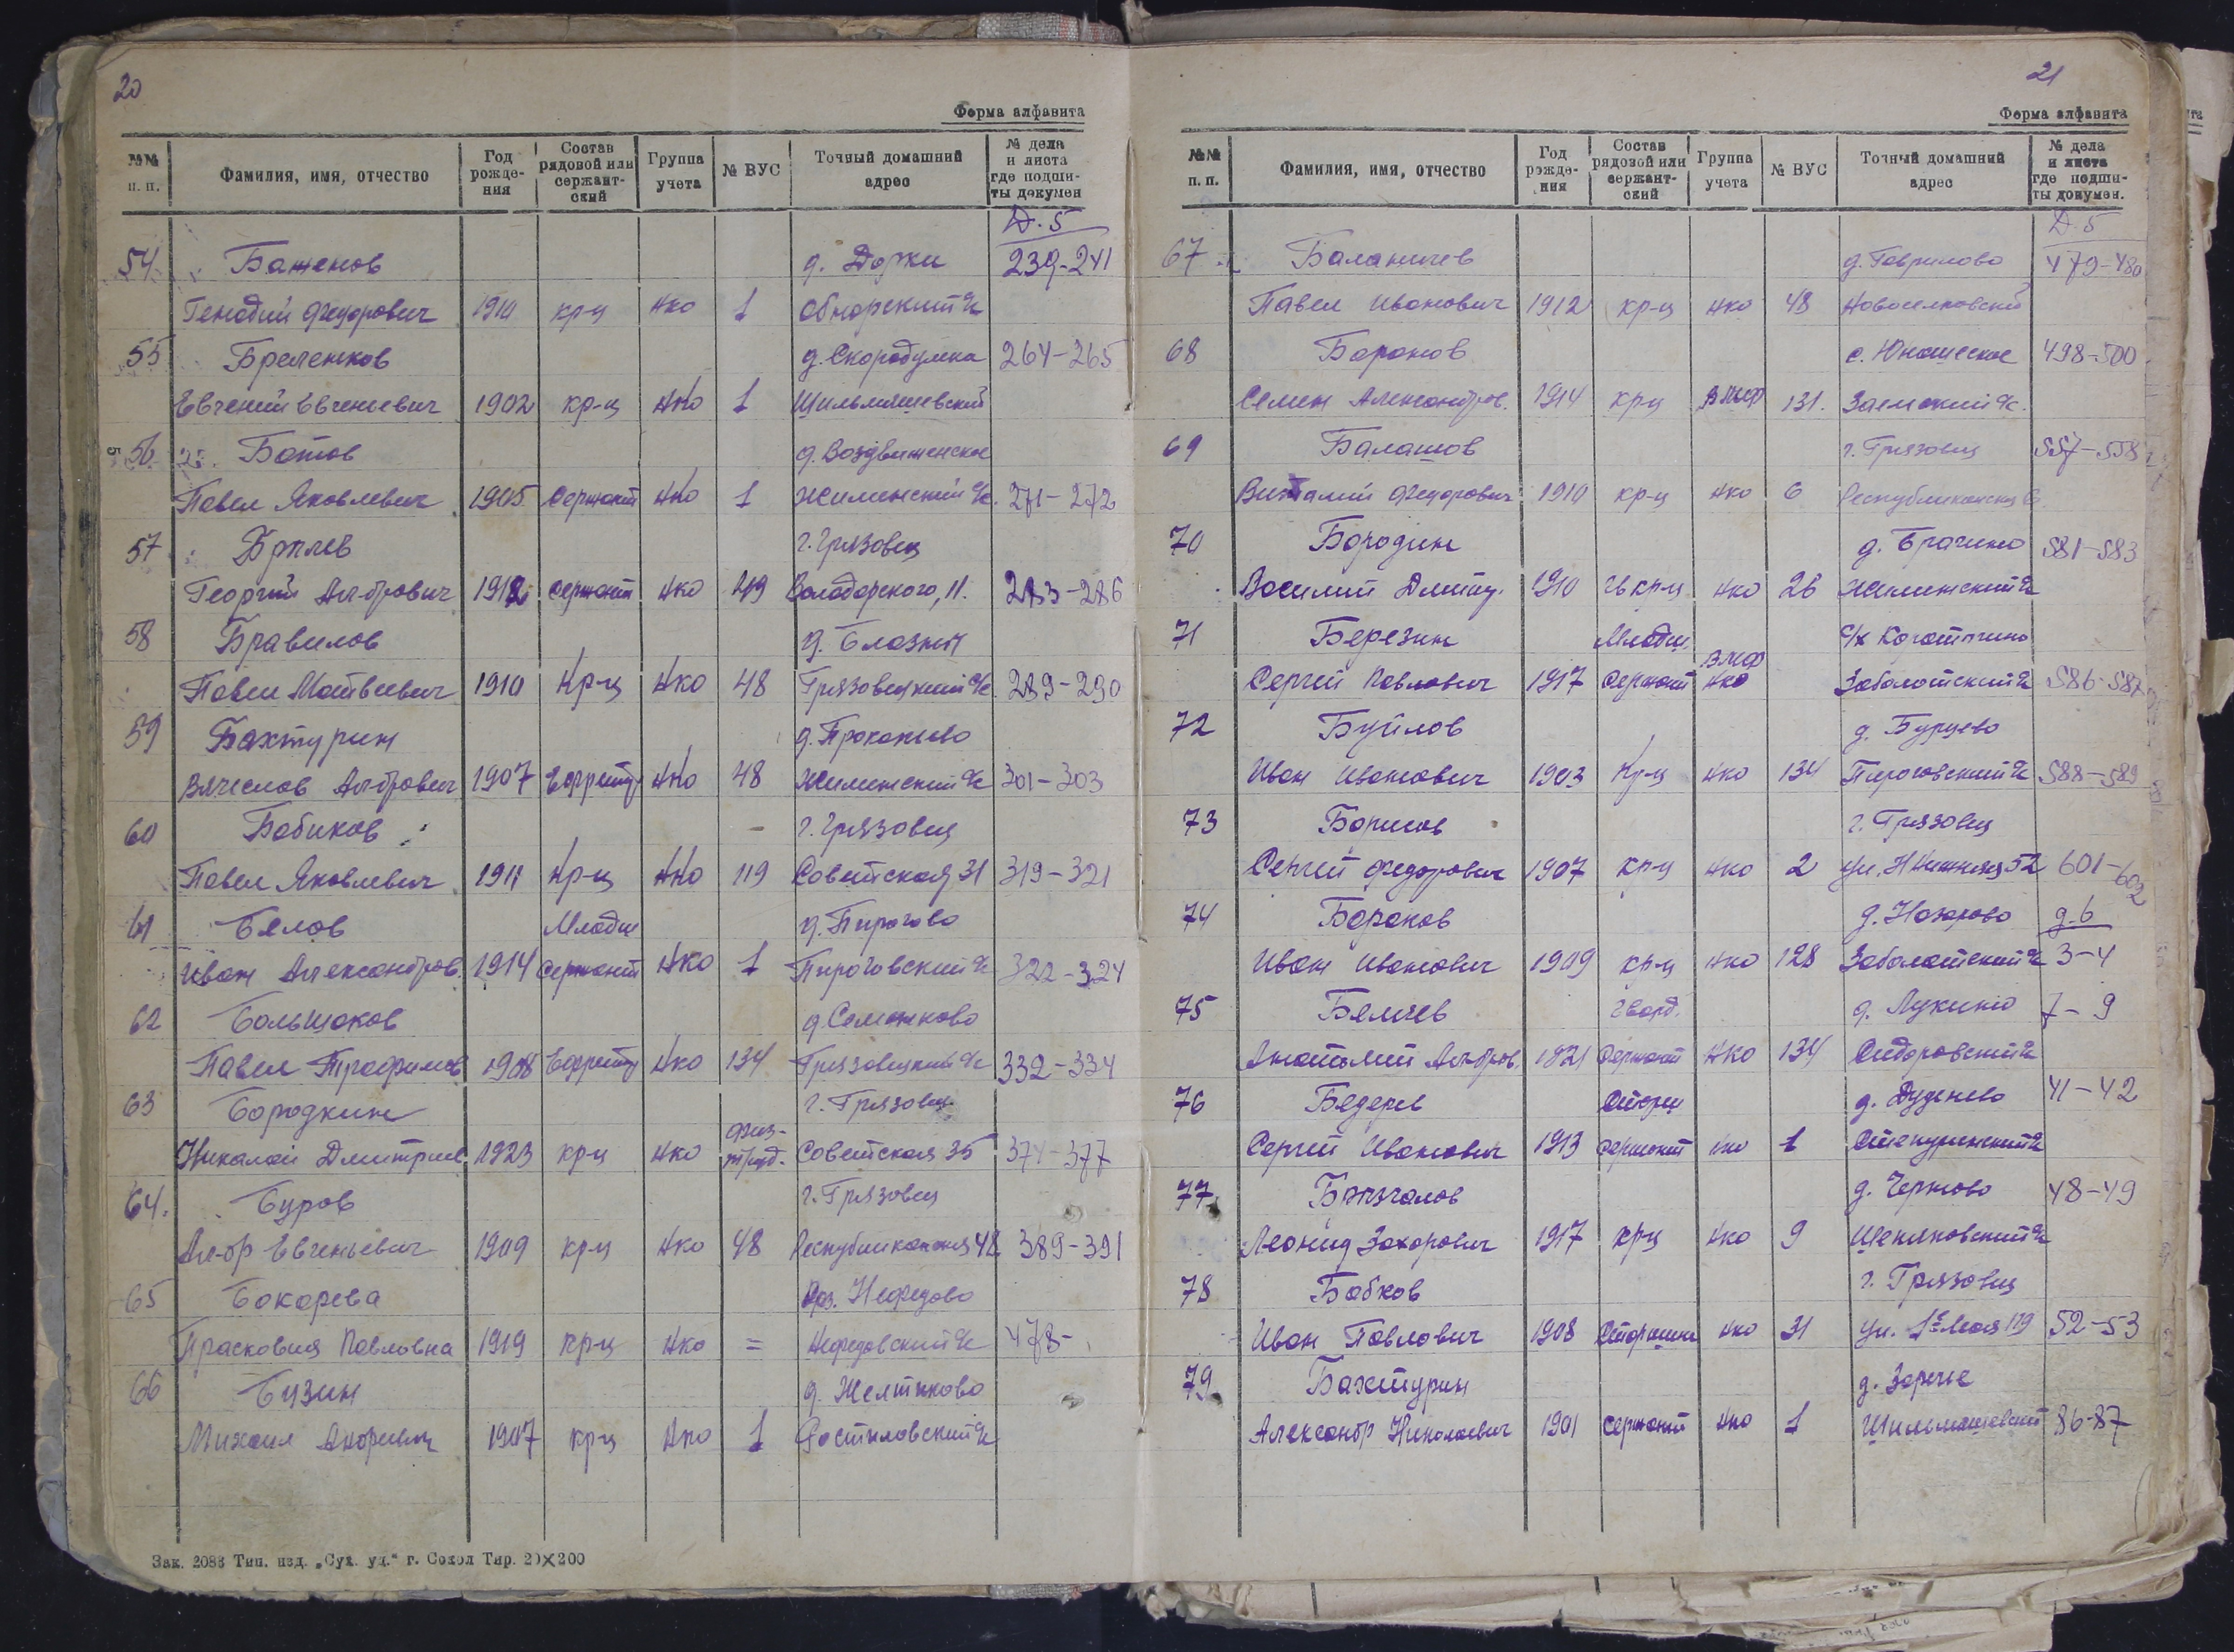 20
Форма алфавита
№№ п. п. | Фамилия, имя, отчество | Год рожде-ния | Состав рядовой или сержант-ский | Группа учета | № ВУС | Точный домашний адрес | № дела и листа где подши-ты докумен
Д. 5
54 Баженов д. Дорки 239-241
Генадий Федорович 1910 кр-ц нко 1 Обнорский с/с
55 д. Скородумка 264-265
Евгений Евгеньевич 1902 кр-ц нко 1
56 Ботов д. Воздвиженское
Павел Яковлевич 1905 сержант нко 1 Жилинский с/с. 271-272
57 г. Грязовец
Георгий Ал-дрович сержант нко Володарского, 11. 283-286
58 Бравилов д. Блазны
Павел Матвеевич 1910 кр-ц нко 48 Грязовецкий с/с 289-290
59 Бахтурин д. Прокопьево
Вячеслав Ал-дрович 1907 Ефрейтор нко 48 Жилинский с/с 301-303
60 Бабиков г. Грязовец
Павел Яковлевич 1911 кр-ц нко 119 Советская 31 319-321
61 Белов Младш д. Пирогово
Иван Александров. 1914 сержант нко 1 Пироговский с/с 322-324
62 Большаков д. Семенково
Павел Трофимов 1908 Ефрейтор нко 134 Грязовецкий с/с 332-334
63 Бородкин г. Грязовец
Николай Дмитрие 1923 кр-ц нко физ-труд. Советская 35 374-377
64. Буров г. Грязовец
Ал-др Евгеньевич 1909 кр-ц нко 48 Республиканская 48 389-391
65 Бокарева раз. Нефедово
Прасковия Павловна 1919 кр-ц нко = Нефедовский с/с 478-
66 Бузин д. Желтиково
Михаил 1907 кр-ц нко 1 Ростиловский с/с
Зак. 2083 Тип. изд. „Сух. уд.“ г. Сокол Тир. 20×200
21
Форма алфавита
№№ п. п. | Фамилия, имя, отчество | Год рожде-ния | Состав рядовой или сержант-ский | Группа учета | № ВУС | Точный домашний адрес | № дела и листа где подши-ты докумен.
Д. 5
67 Баланичев д. Гаврилово 479-480
Павел Иванович 1912 кр-ц нко 48 Новоселковский
68 Баранов с. Юношеское 498-500
Семен Александров. 1914 кр-ц 131. Заемский с/с.
69 Балашов г. Грязовец 557-558
Виталий Федорович 1910 кр-ц нко 6 Республиканская
70 Бородин д. Брагино 581-583
Василий Дмитр. 1910 гв кр-ц нко 26 Жилинский с/с
71 Березин Младш.
Сергей Павлович 1917 сержант нко Заболотский с/с 586-587
72 Буйлов д. Бурцево
Иван Иванович 1903 кр-ц нко 134 Пироговский с/с 588-589
73 Борисов г. Грязовец
Сергей Федорович 1907 кр-ц нко 2 ул. Нижняя 52 601-602
74 Баранов д. Назарово д. 6
Иван Иванович 1909 кр-ц нко 128 Заболотский с/с 3-4
75 Беляев гвард. д. Лукино 7-9
Анатолий Ал-дров. 1921 сержант нко 134 Сидоровский с/с
76 Бедерев Старш д. Дуденево 41-42
Сергей Иванович 1913 сержант нко 1 Степуринский с/с
77 Брызгалов д. Черново 48-49
Леонид Захарович 1917 кр-ц нко 9
78 Бобков г. Грязовец
Иван Павлович 1908 Старшина нко 31 ул. 1е Мая 119 52-53
79 Бахтурин д. Заречье
Александр Николаевич 1901 сержант нко 1 86-87